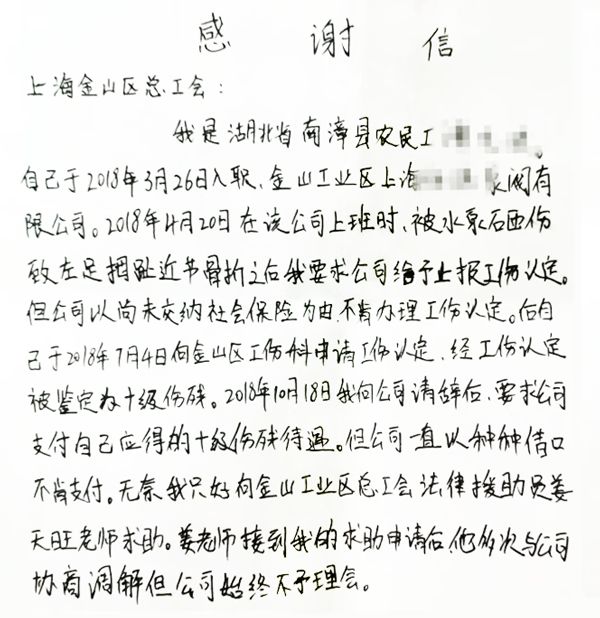 感 谢 信
上海金山区总工会：
我是湖北省南漳县农民工
自己于2018年3月26日入职、金山工业区上海泵阀有
限公司。2018年4月20日在该公司上班时、被水泵石西伤
致左足拇趾近节骨折之后我要求公司给予上报工伤认定。
但公司以尚未交纳社会保险为由、不肯办理工伤认定。后自
己于2018年7月4日向金山区工伤科申请工伤认定、经工伤认定
被鉴定为十级伤残。2018年10月18日我向公司请辞后、要求公司
支付自己应得的十级伤残待遇。但公司一直以种种借口
不肯支付。无奈我只好向金山工业区总工会法律援助员姜
天旺老师求助。姜老师接到我的求助申请后、他多次与公司
协商调解但公司始终不予理会。